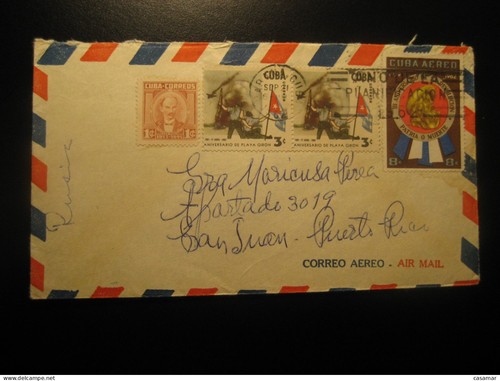 CUBA·CORREOS
1¢ 1¢
CUBA
3¢
ANIVERSARIO DE PLAYA GIRON
CUBA
3¢
ANIVERSARIO DE PLAYA GIRON
CUBA AEREO
PATRIA O MUERTE
8¢ 8¢
Rusia
Sra Maricusa Perea
Apartado 3019
San Juan - Puerto Rico
CORREO AEREO - AIR MAIL
delcampe.net
casamar